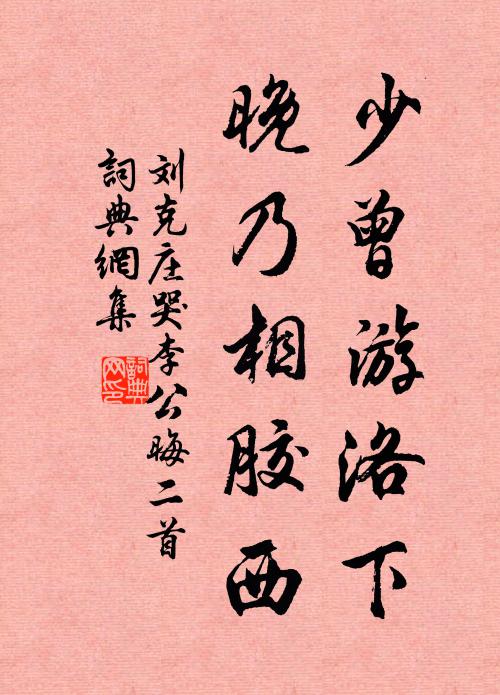 少曾游洛下
晚乃相胶西
刘克庄哭李公晦二首
詞典網集
詞典网印